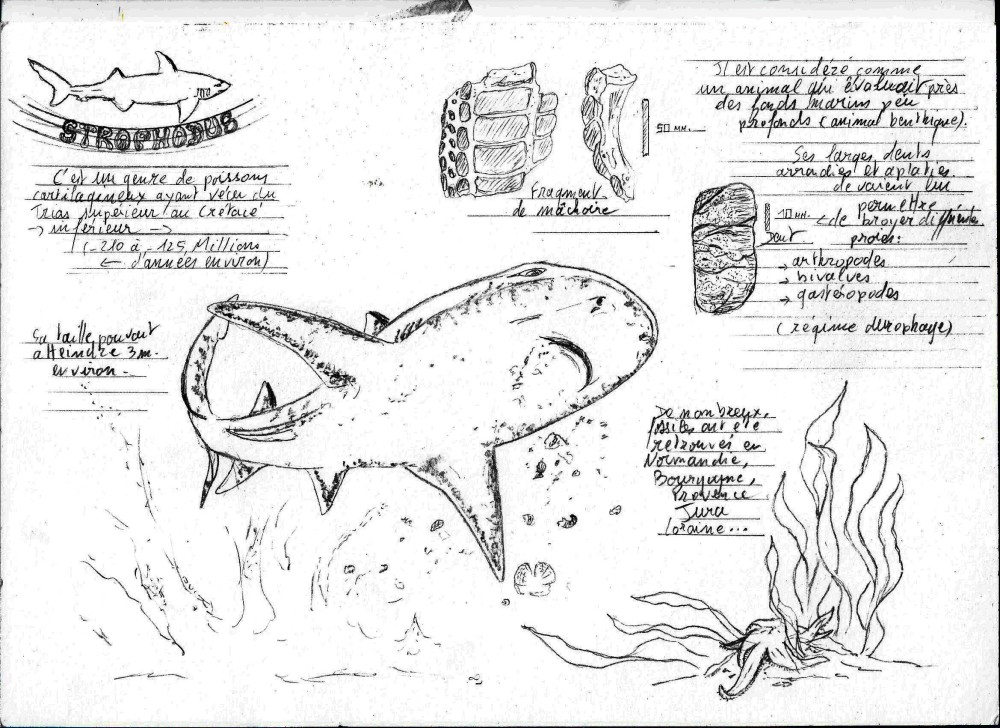 STROPHODUS
C'est un genre de poissons
cartilagineux ayant vécu du
Trias supérieur au Crétacé
→ inférieur →
(-210 à -125 Millions
← d'années environ)
Sa taille pouvait
atteindre 3m.
environ -
50 mm.
Fragment
de mâchoire
Il est considéré comme
un animal qui évoluait près
des fonds marins peu
profonds (animal benthique).
Ses larges dents
arrodies et aplaties
devaient lui
permettre
10 mm. ← de broyer différentes
Dent
proies:
→ arthropodes
→ bivalves
→ gastéropodes
(régime durophage)
De nombreux,
fossiles ont été
retrouvés en
Normandie,
Bourgogne,
Provence
Jura
Loraine...